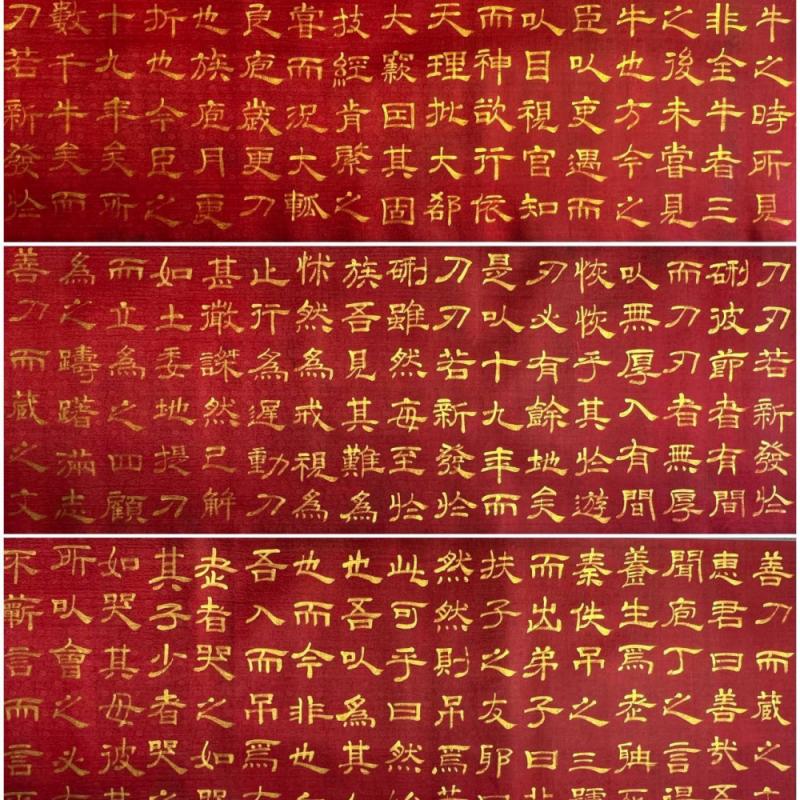 牛之時所見
非全牛者三
之後未嘗見
牛也方今之
臣以吏遇而
以目視官知
而神欲行依
天理批大郤
大窾因其固
技經肯綮之
嘗而況大軱
良庖歲更刀
也族庖月更
折也今臣之
十九年矣所
數千牛矣而
刀若新發於
刀刃若新發於
硎彼節者有間
而刀刃者無厚
以無厚入有間
恢恢乎其於遊
刃必有餘地矣
是以十九年而
刀刃若新發於
硎雖然每至於
族吾見其難為
怵然為戒視為
止行為遲動刀
甚微謋然已解
如土委地提刀
而立為之四顧
為之躊躇滿志
善刀而藏之文
善刀而藏之
惠君曰善哉
聞庖丁之言
養生焉老聃
秦佚吊之三
而出弟子曰
扶子之友耶
然然則吊焉
此可乎曰然
也吾以為其
也而今非也
吾入而吊焉
老者哭之如
其子少者哭
如哭其母彼
所以會之必
不蘄言而言